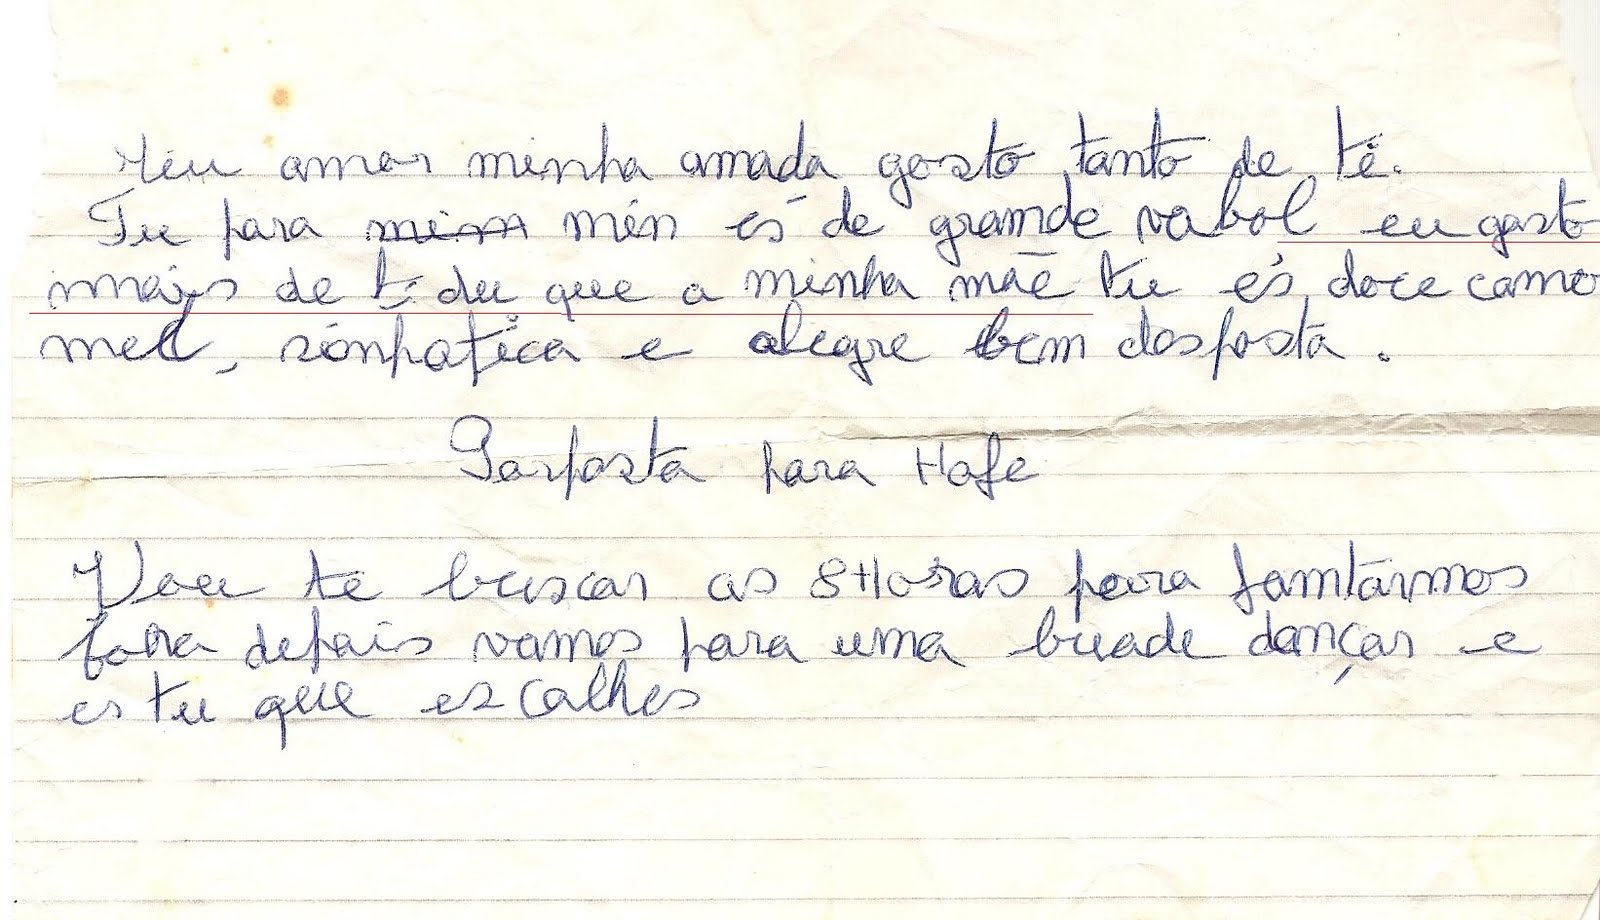 Meu amor minha amada gosto tanto de ti.
Tu para mim min és de grande vabol eu gosto
mais de ti du que a minha mãe tu és doce camo
mel, sinpatica e alegre bem desposta.
Parposta para Hofe
Vou te buscar as 8 Horas para jamtarmos
fora depais vamos para uma buade dançar e
es tu que escalhes